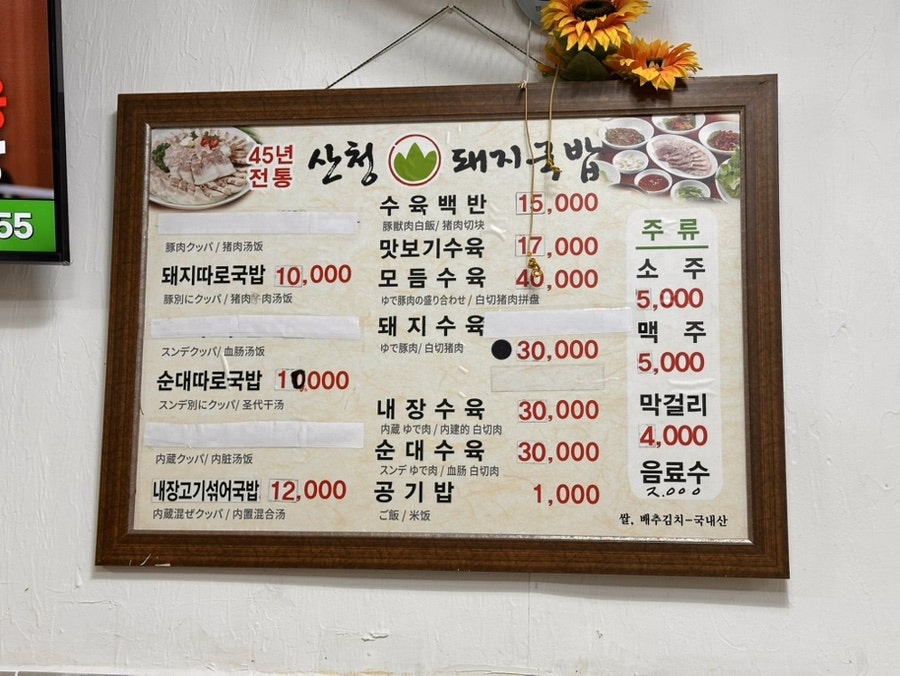 55
45년
전통
산청 돼지국밥
豚肉クッパ / 猪肉汤饭
돼지따로국밥 10,000
豚別にクッパ / 猪肉 肉汤饭
スンデクッパ / 血肠汤饭
순대따로국밥 10,000
スンデ別にクッパ / 圣代干汤
内蔵クッパ / 内脏汤饭
내장고기섞어국밥 12,000
内蔵混ぜクッパ / 内置混合汤
수육백반 15,000
豚獣肉白飯 / 猪肉切块
맛보기수육 17,000
모듬수육 40,000
ゆで豚肉の盛り合わせ / 白切猪肉拼盘
돼지수육
ゆで豚肉 / 白切猪肉
30,000
내장수육 30,000
内蔵 ゆで肉 / 内建的 白切肉
순대수육 30,000
スンデ ゆで肉 / 血肠 白切肉
공기밥 1,000
ご飯 / 米饭
주류
소주
5,000
맥주
5,000
막걸리
4,000
음료수
2.000
쌀, 배추김치-국내산